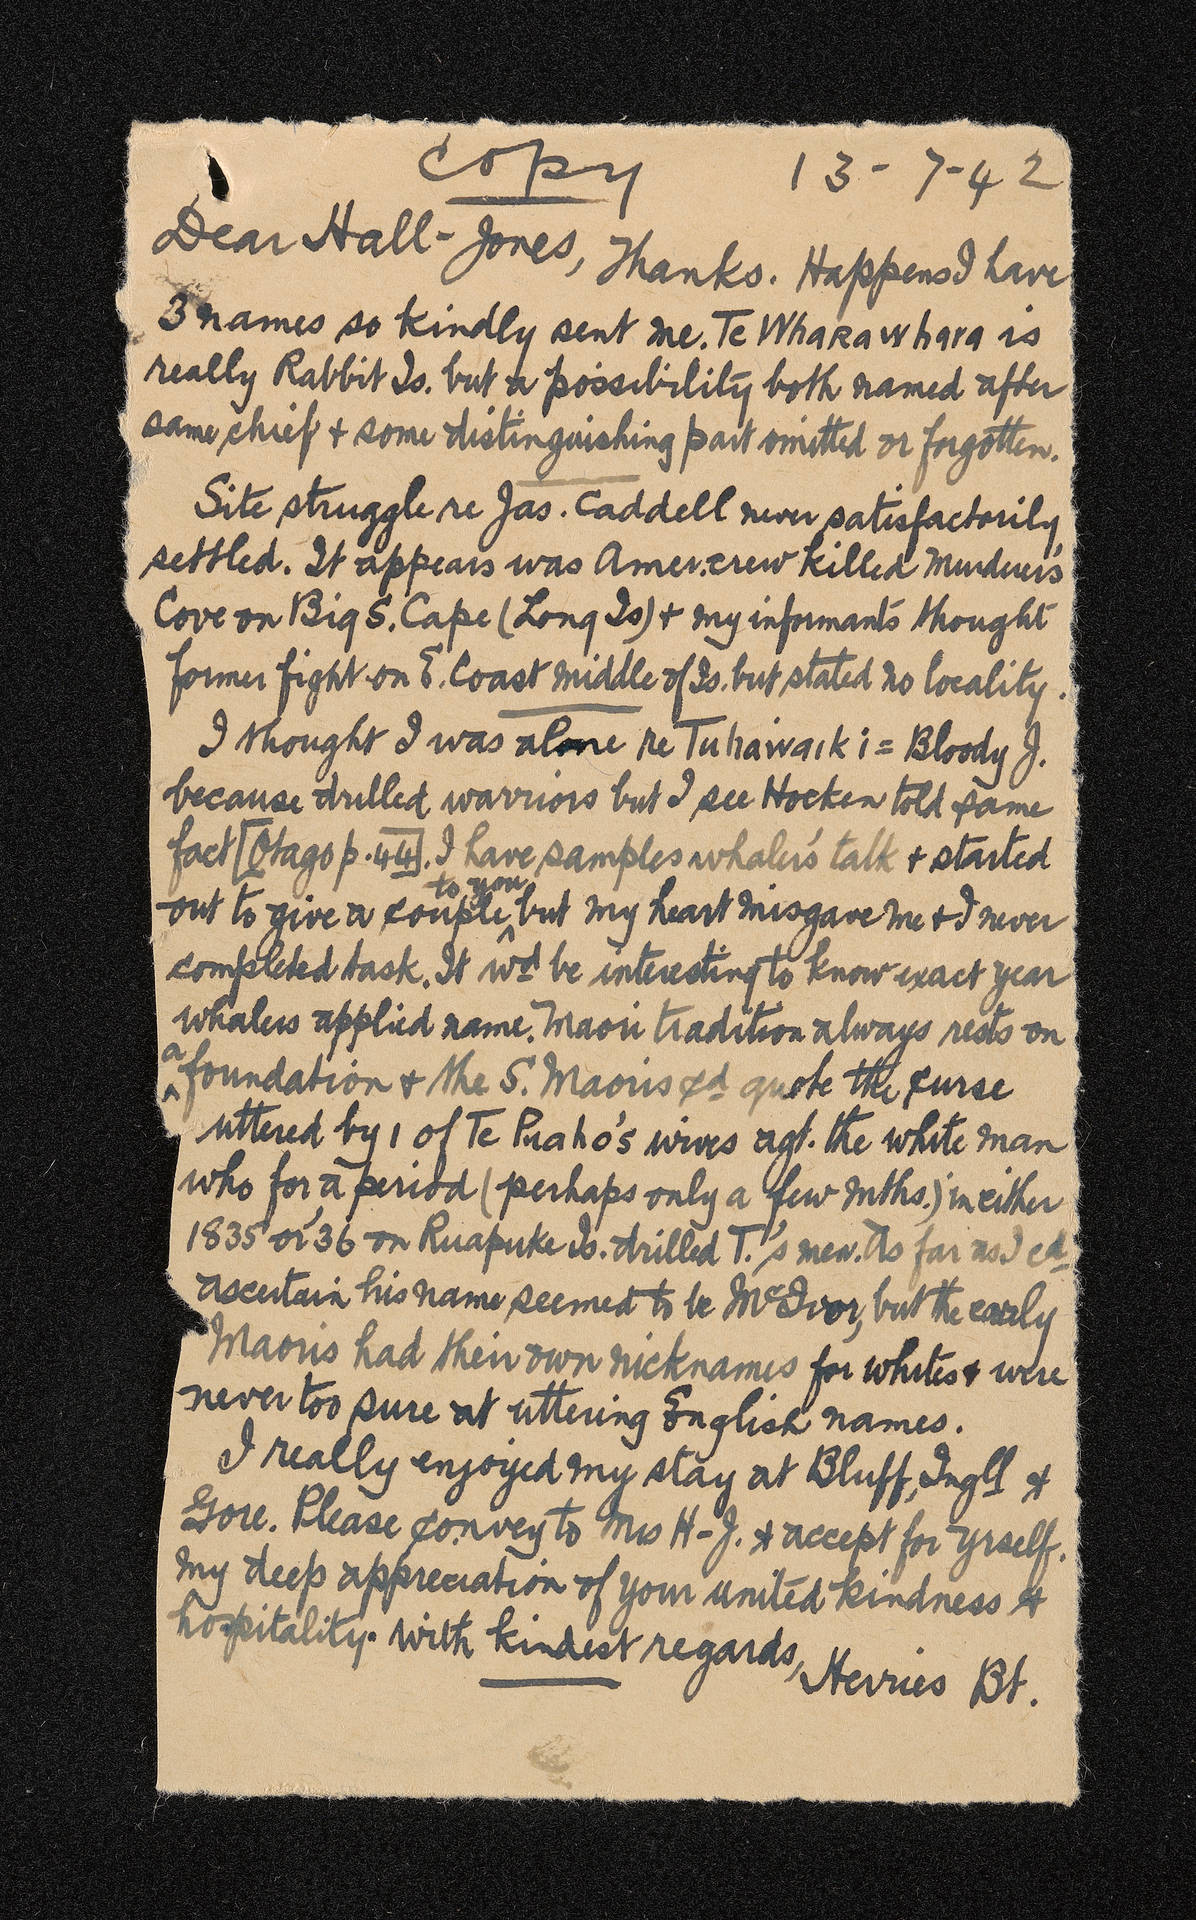 Copy 13-7-42
Dear Hall-Jones, Thanks. Happens I have
3 names so kindly sent me. Te Wharawhara is
really Rabbit Is. but a possibility both named after
same chief + some distinguishing part omitted or forgotten.
Site struggle re Jas. Caddell never satisfactorily
settled. It appears was Amer. crew killed Murderers
Cove on Big S. Cape (Long Is) + my informants thought
former fight on E. Coast middle of Is. but stated no locality.
I thought I was alone re Tuhawaiki = Bloody J.
because drilled warriors but I see Hocken told same
fact [Otago p. 44]. I have samples whaler's talk + started
out to give a couple to you but my heart misgave me + I never
completed task. It wd be interesting to know exact year
whalers applied name. Maori tradition always rests on
a foundation + the S. Maoris cd quote the curse
uttered by 1 of Te Puaho's wives agt. the white man
who for a period (perhaps only a few mths.) in either
1835 or '36 on Ruapuke Is. drilled T.'s men. As far as I cd
ascertain his name seemed to be McIvor, but the early
Maoris had their own nicknames for whites + were
never too sure at uttering English names.
I really enjoyed my stay at Bluff, Ingll +
Gore. Please convey to Mrs H-J. + accept for yrself.
my deep appreciation of your united kindness +
hospitality. With kindest regards,
Herries Bt.